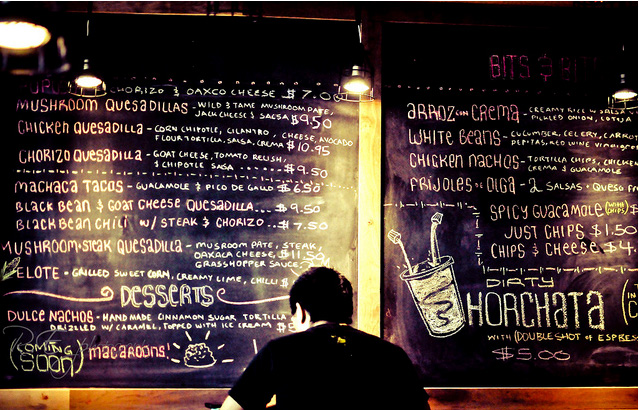 CHORIZO & OAXCO CHEESE $7.00
MUSHROOM QUESADILLAS - WILD & TAME MUSHROOM PATE,
JACK CHEESE & SALSA $9.50
CHICKEN QUESADILLA - CORN CHIPOTLE, CILANTRO, CHEESE, AVOCADO
FLOUR TORTILLA, SALSA, CREMA $10.95
CHORIZO QUESADILLA - GOAT CHEESE, TOMATO RELISH,
& CHIPOTLE SALSA $9.50
MACHACA TACOS - GUACAMOLE & PICO DE GALLO $6.50
BLACK BEAN & GOAT CHEESE QUESADILLA... $9.50
BLACK BEAN CHILI W/ STEAK & CHORIZO.. $7.50
MUSHROOM-STEAK QUESADILLA - MUSROOM PATE, STEAK,
OAXACA CHEESE, $11.50
GRASSHOPPER SAUCE
ELOTE - GRILLED SWEET CORN, CREAMY LIME, CHILI $
DESSERTS
DULCE NACHOS - HANDMADE CINNAMON SUGAR TORTILLA
DRIZZLED W/ CARAMEL, TOPPED WITH ICE CREAM $
(COMING SOON)
MACAROONS!
BITS &
ARROZ CON CREMA - CREAMY RICE W/ SALSA
PICKLED ONION, COTIJA
WHITE BEANS - CUCUMBER, CELERY, CARROT
PEPITAS, RED WINE
CHICKEN NACHOS - TORTILLA CHIPS, CHICKEN
CREMA & GUACAMOLE
FRIJOLES DE OLGA - 2 SALSAS + QUESO
SPICY GUACAMOLE (WITH CHIPS) $
JUST CHIPS $1.50
CHIPS & CHEESE $4
DIRTY
HORCHATA
WITH (DOUBLE SHOT OF ESPRES
$5.00